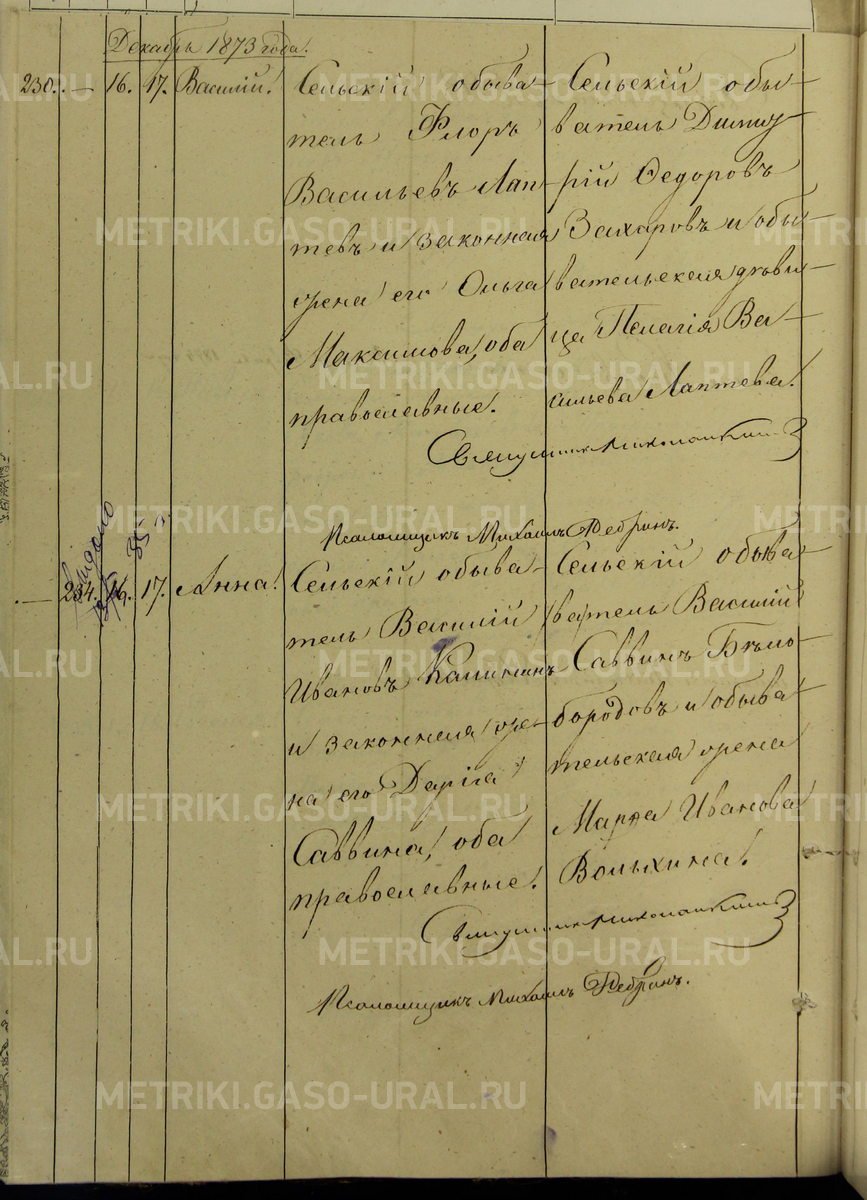 Декабрь 1873 года.
230. — 16. 17. Василій.
Сельскій обыва-
тель Флоръ
Васильевъ Лап-
тевъ и законная
жена его Ольга
Максимова, оба
православные.
Сельскій обы-
ватель Дмит-
рій Ѳедоровъ
Захаровъ и обы-
вательская дѣви-
ца Пелагія Ва-
сильева Лаптева.
Священникъ
Псаломщикъ Михаилъ Ребринъ.
Выдано
85
— 234. 16. 17. Анна.
Сельскій обыва-
тель Василій
Ивановъ Калининъ
и законная же-
на его Дарія
Саввина, оба
православные.
Сельскій обыва-
ватель Василій
Саввинъ Бѣло-
бородовъ и обыва-
тельская жена
Марѳа Иванова
Волыхина.
Священникъ
Псаломщикъ Михаилъ Ребринъ.
METRIKI.GASO-URAL.RU